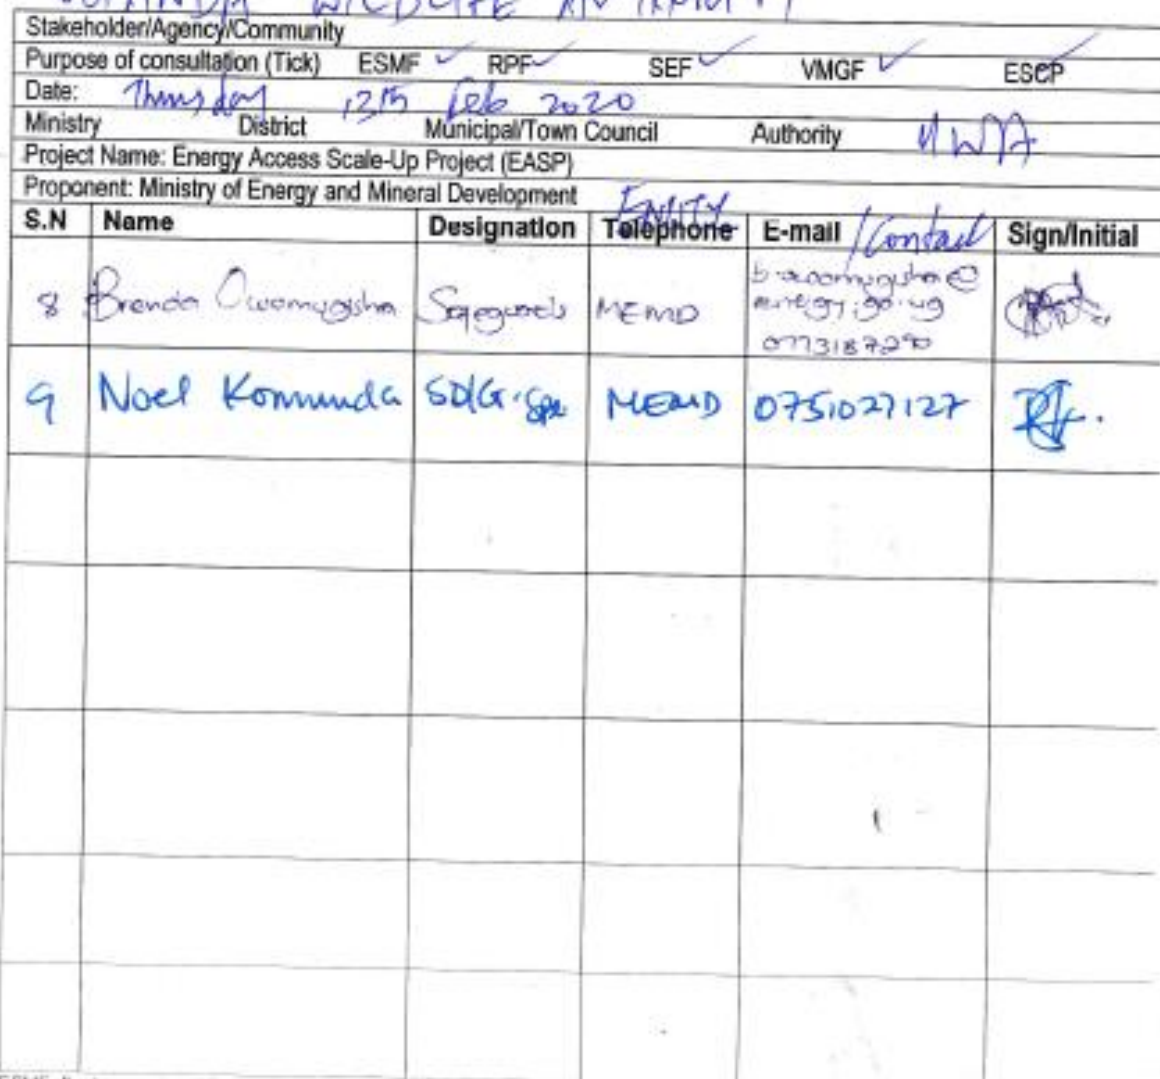 UGANDA WILDLIFE AUTHORITY
Stakeholder/Agency/Community
Purpose of consultation (Tick) ESMF ✓ RPF ✓ SEF ✓ VMGF ✓ ESCP ✓
Date: Thursday 13th Feb 2020
Ministry District Municipal/Town Council Authority UWA
Project Name: Energy Access Scale-Up Project (EASP)
Proponent: Ministry of Energy and Mineral Development
ENTITY
S.N Name Designation Telephone E-mail /Contact Sign/Initial
8 Brenda Owomugisha Safeguards MEMD b.owomugisha@
energy.go.ug
0773187290
9 Noel Komunda MEMD 0751027127